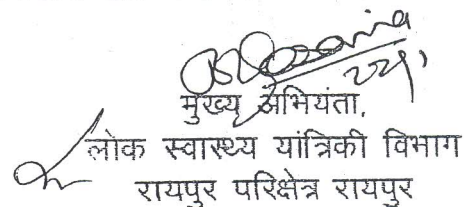 मुख्य अभियंता,
लोक स्वास्थ्य यांत्रिकी विभाग
रायपुर परिक्षेत्र रायपुर